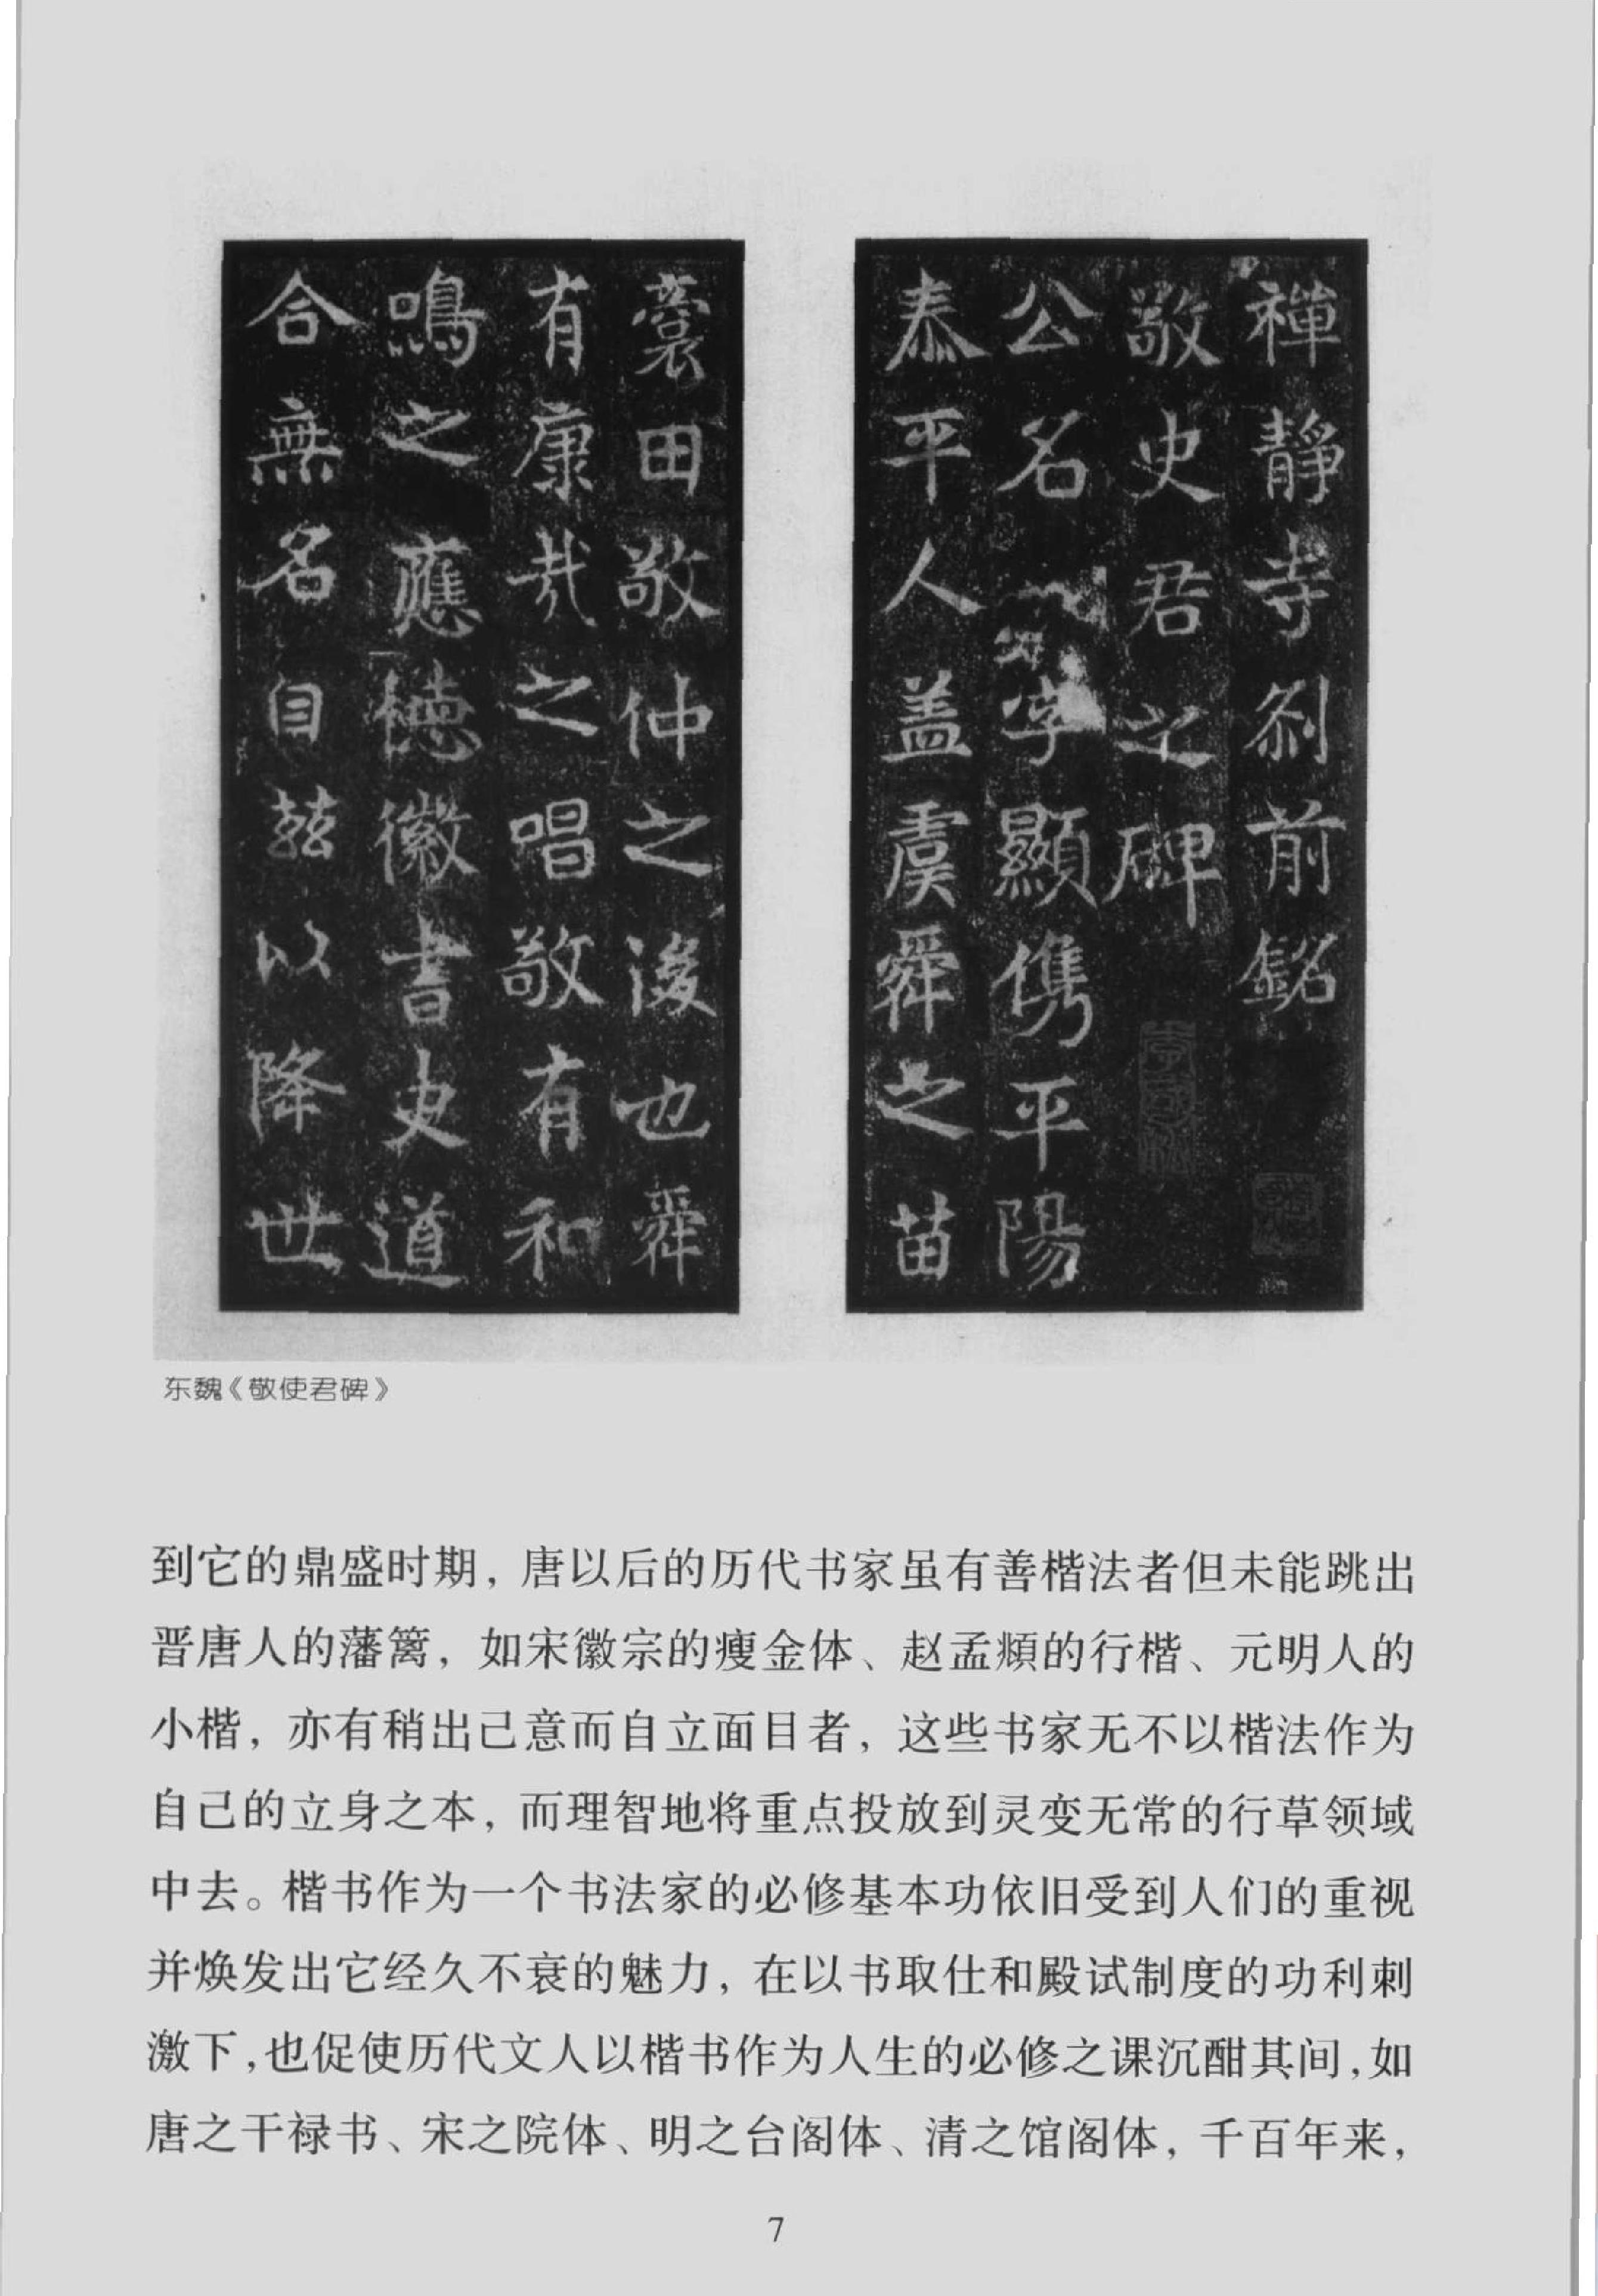 禪靜寺剎前銘
敬史君之碑
公名字顯儁平陽
泰平人盖虞舜之苗
裔田敬仲之後也舜
有康哉之唱敬有和
鳴之應德徽書史道
合無名自兹以降世
东魏《敬使君碑》
到它的鼎盛时期，唐以后的历代书家虽有善楷法者但未能跳出
晋唐人的藩篱，如宋徽宗的瘦金体、赵孟頫的行楷、元明人的
小楷，亦有稍出己意而自立面目者，这些书家无不以楷法作为
自己的立身之本，而理智地将重点投放到灵变无常的行草领域
中去。楷书作为一个书法家的必修基本功依旧受到人们的重视
并焕发出它经久不衰的魅力，在以书取仕和殿试制度的功利刺
激下，也促使历代文人以楷书作为人生的必修之课沉酣其间，如
唐之干禄书、宋之院体、明之台阁体、清之馆阁体，千百年来，
7